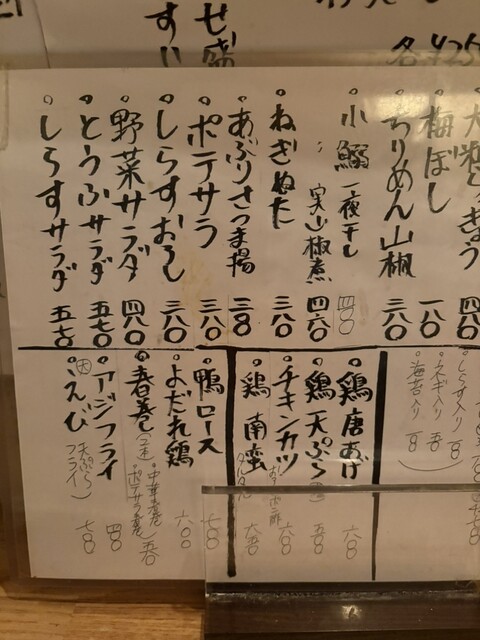 各¥25
梅ぼし 一八〇
ちりめん山椒 三八〇
小鰯 一夜干し 四〇〇
実山椒煮 四六〇
ねぎぬた 三八〇
あぶりさつま揚 三八〇
ポテサラ 三八〇
しらすおろし 三八〇
野菜サラダ 四八〇
とうふサラダ 五七〇
しらすサラダ 五七〇
しらす入り
ネギ入り
海苔入り
鶏唐あげ 六八〇
鶏天ぷら 五八〇
チキンカツ 六八〇
おろしポン酢
鶏南蛮 六五〇
タルタル
鴨ロース 七八〇
よだれ鶏 六〇〇
春巻（二本）
・中華春巻
・ポテサラ春巻 五〇〇
アジフライ 四〇〇
大えび（天ぷら フライ） 七八〇